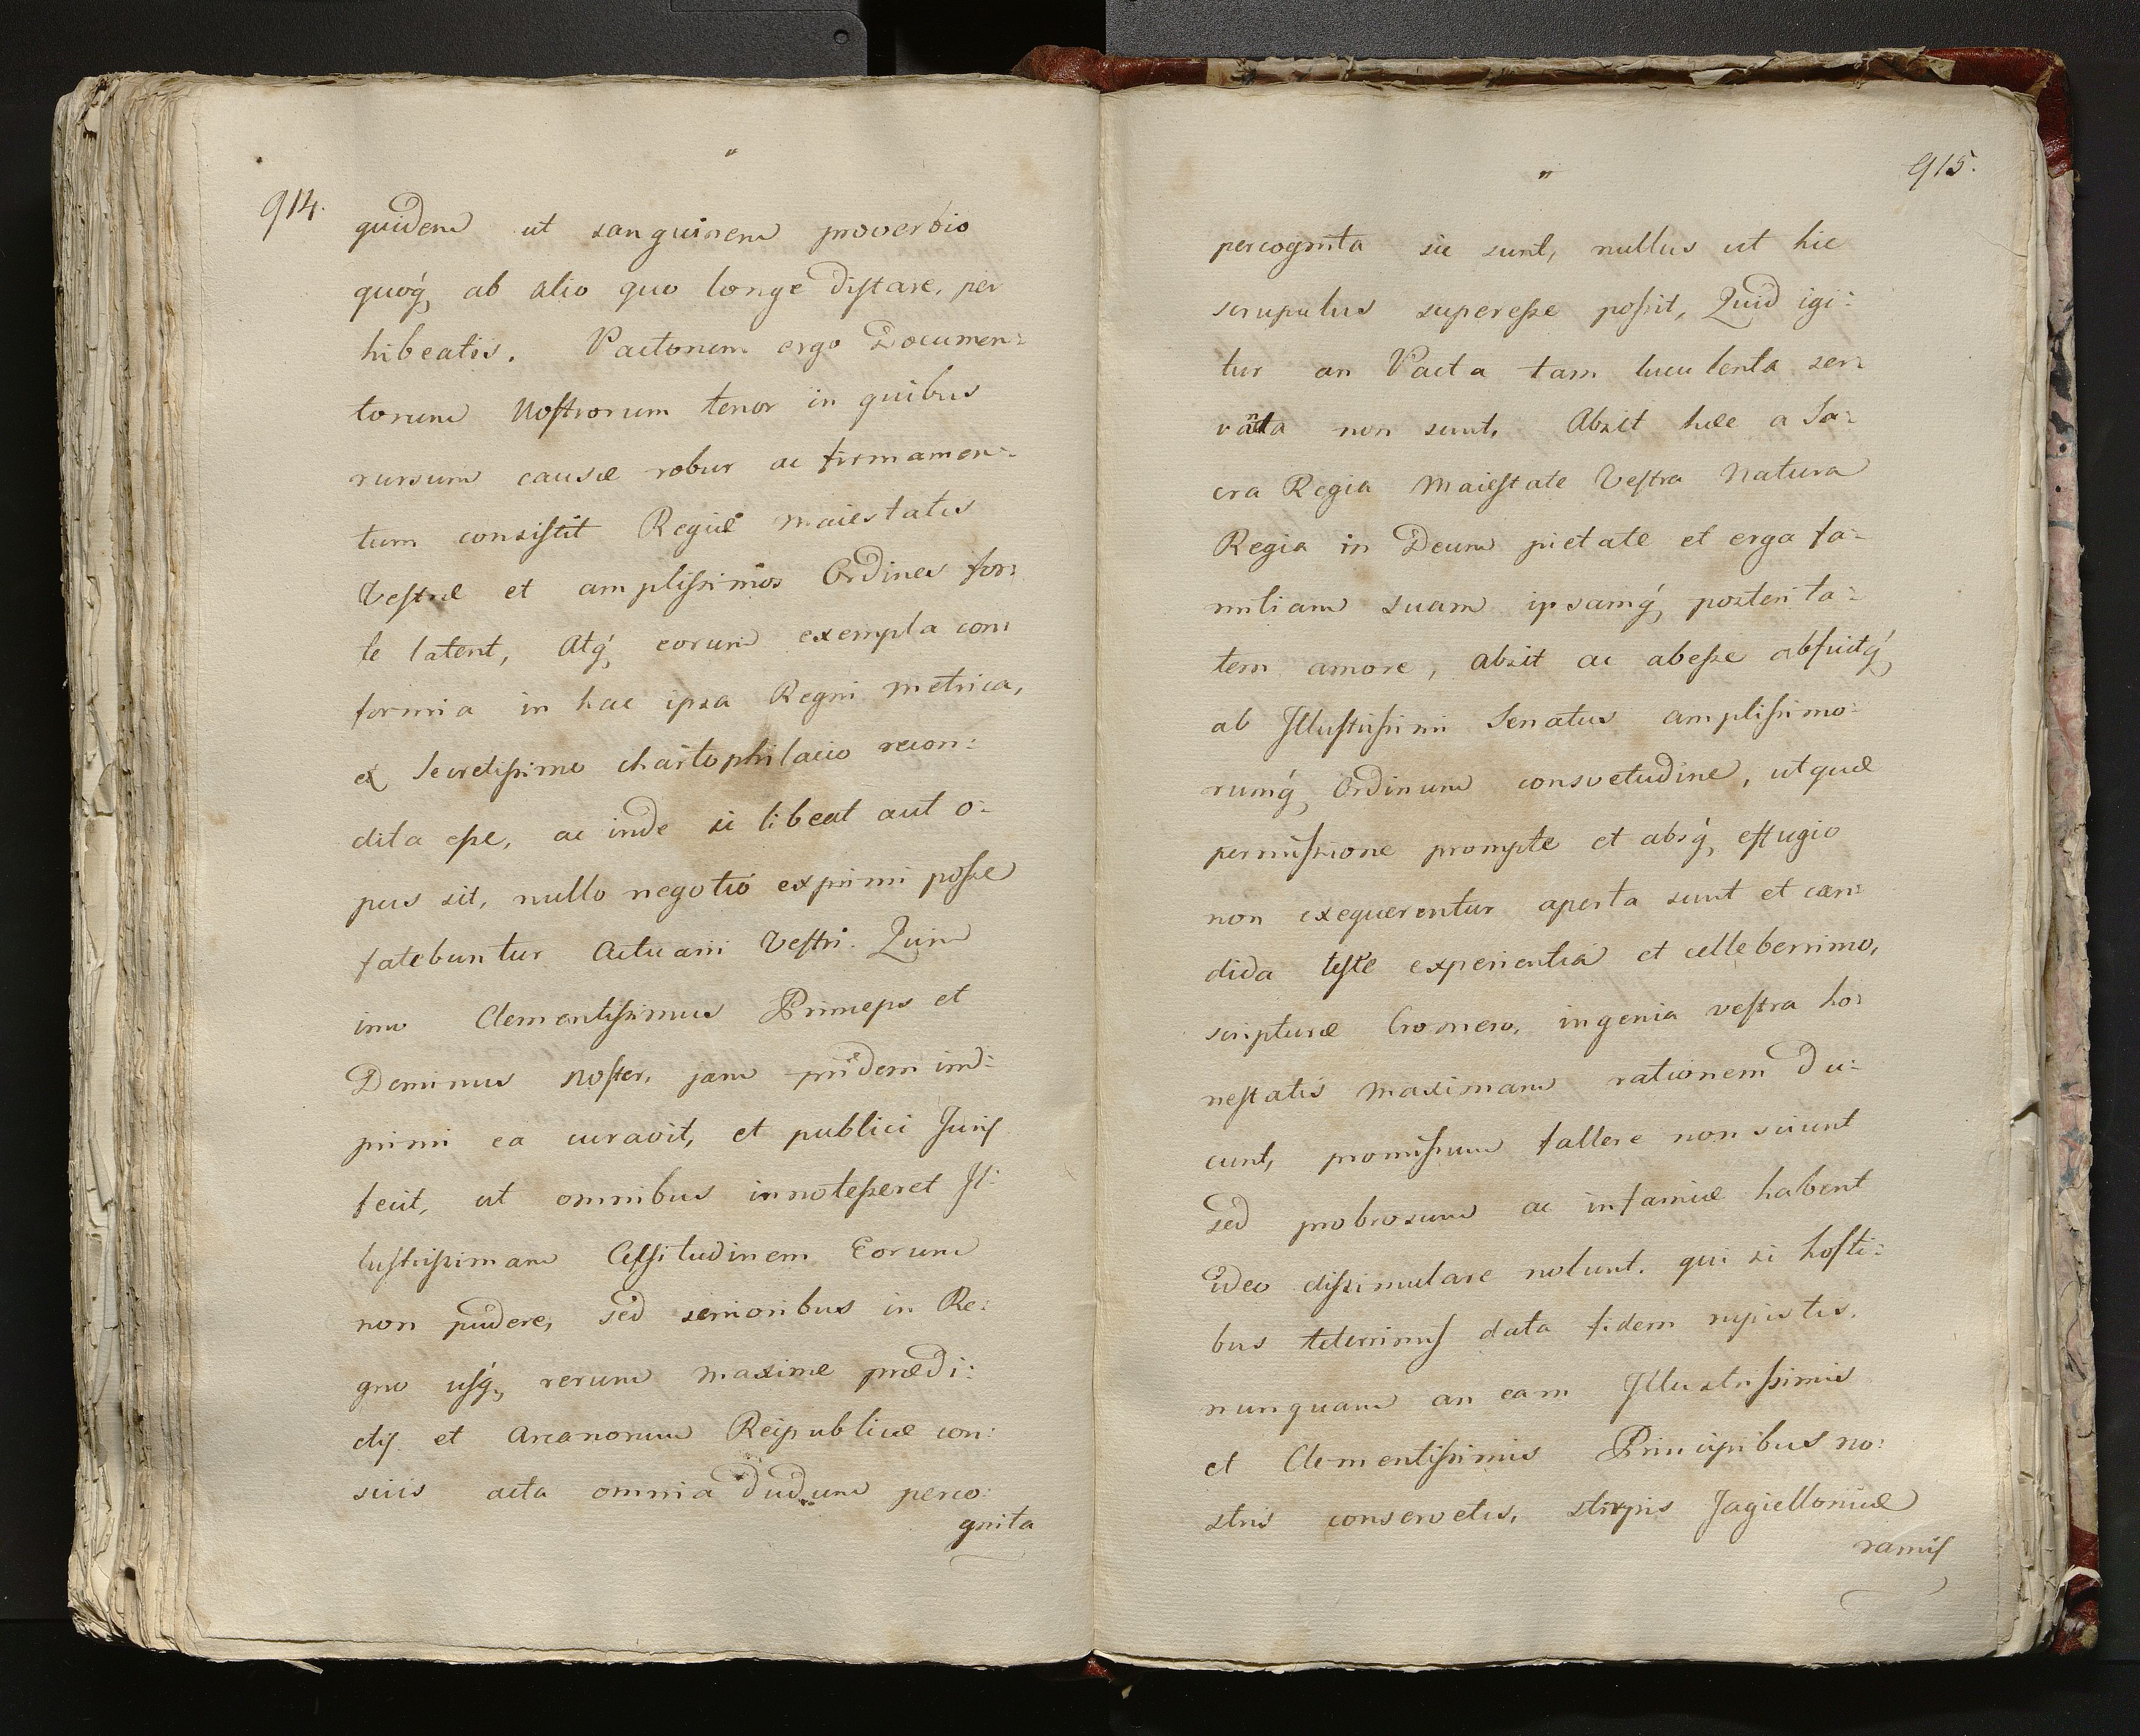 914.
quidem ut sanguinem proverbio
quoq́ ab alio quo longe distare, per
hibeatis. Pactorum ergo Documen:
torum Nostrorum tenor in quibus
rursum causæ robur ac firmamen:
tum consistit Regiæ Maiestatis
Vestræ et amplissimos Ordines for:
te latent, Atq́ eorum exempla con:
formia in hac ipsa Regni Metrica,
ex Secretissimo chartophilacio recon:
dita esse, ac inde si libeat aut o:
pus sit, nullo negotio exprimi posse
fatebuntur Actuarii Vestri. Quin
imo Clementissimus Princeps et
Dominus Noster, jam pridem im:
primi ea curavit, et publici Juris
fecit, ut omnibus innotesceret Il:
lustrissimam Celsitudinem Eorum
non pudere, sed senioribus in Re:
gno usq́, rerum maxime prædi:
ctis et Arcanorum Reipublicæ con:
sciis acta omnia dudum perco:
gnita
915.
percognita sic sunt, nullus ut hic
scrupulus superesse possit, Quid igi:
tur an Pacta tam luculenta ser:
vanda non sunt. Absit hæc a Sa:
cra Regia Maiestate Vestra Natura
Regia in Deum pietate et erga fa:
miliam suam ipsamq́ posterita:
tem amore, absit ac abesse absuitq́
ab Illustrissimi Senatus amplissimo:
rumq́ Ordinum consvetudine, ut quæ
permissione prompte et absq́ effugio
non exequerentur aperta sunt et can:
dida teste experientia et celleberrimo,
scripturæ Cromero, ingenia vestra ho:
nestatis maximam rationem du:
cunt, promissum fallere non sciunt
sed probrosum ac infamiæ habent
ideo dissimulare nolunt. qui si hosti:
bus teterrimis data fidem rupistis.
nunquam an eam Illustrissimis
et Clementissimis Principibus no:
stris conservetis, stirpis Jagielloniæ
ramis